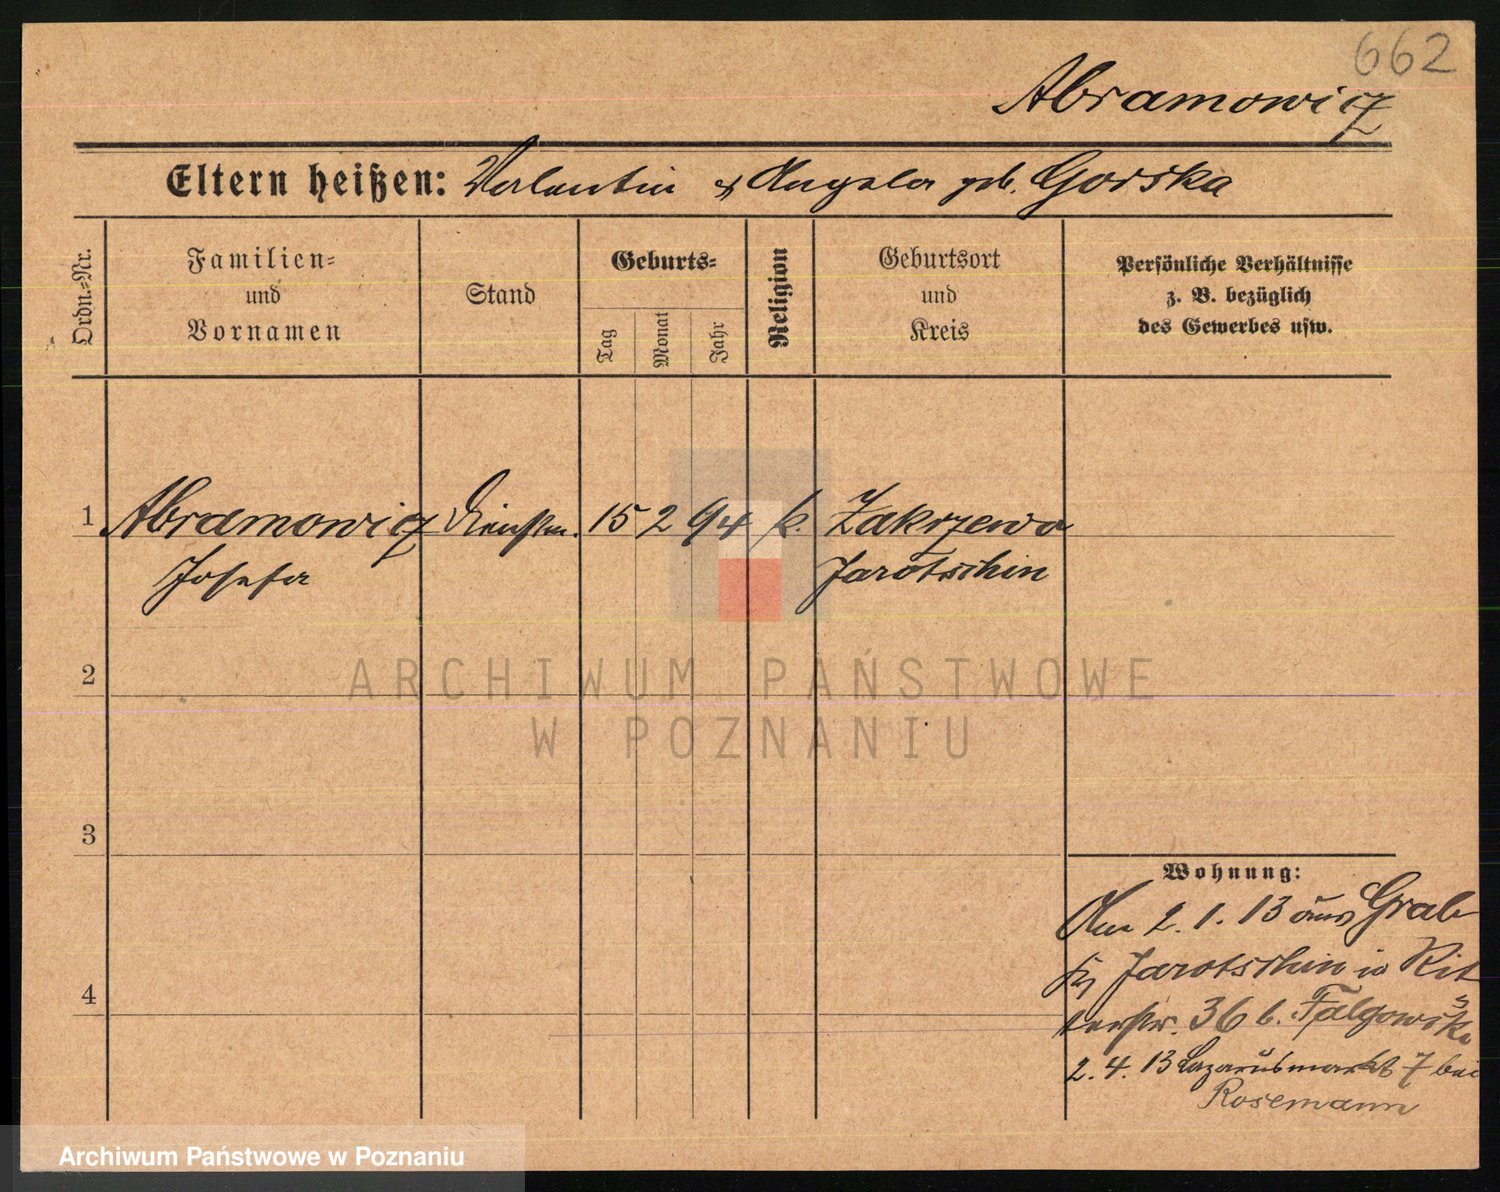 662
Abramowicz
Eltern heißen: Valentin & Angela geb. Gorska
Ordn.-Nr.
Familien- und Vornamen
Stand
Geburts-
Tag
Monat
Jahr
Religion
Geburtsort und Kreis
Persönliche Verhältnisse
z. B. bezüglich
des Gewerbes usw.
1 Abramowicz Dienstm. 15 2 94 k. Zakrzewo
Josefa Jarotschin
2
3
4
Wohnung:
Am 2. 1. 13 aus Grab
Kr Jarotschin in Rit
terstr. 36 b. Falgowska
2. 4. 13 Lazarusmarkt 7 bei
Rosemann
ARCHIWUM PAŃSTWOWE
W POZNANIU
Archiwum Państwowe w Poznaniu